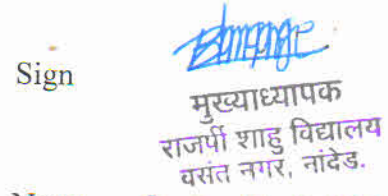 Sign
मुख्याध्यापक
राजर्पी शाहु विद्यालय
वसंत नगर, नांदेड.